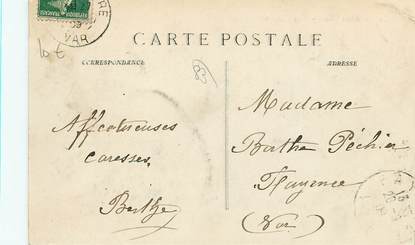 RE
VAR
CARTE POSTALE
CORRESPONDANCE
ADRESSE
Affectueuses
caresses,
Berthe
Madame
Berthe Péchier
Fayence
(Var)